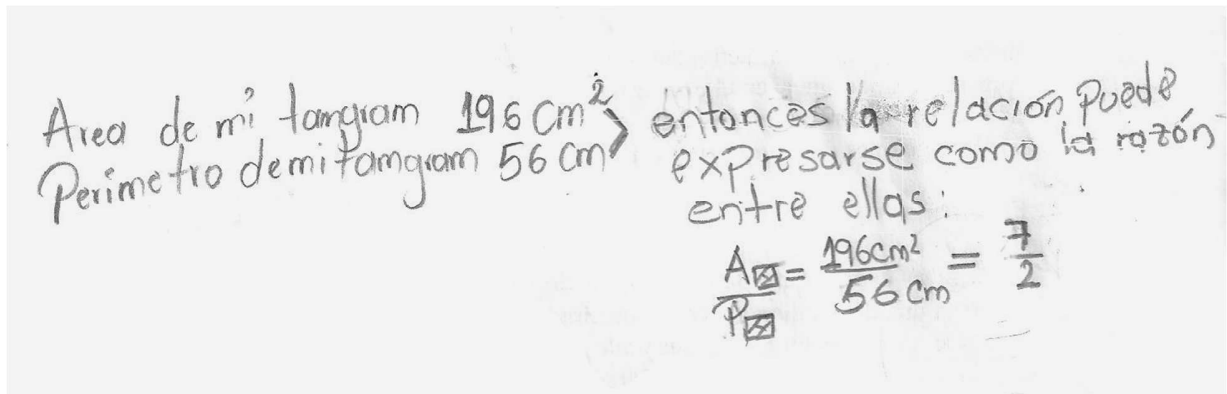 Area de mi tangram 196 cm²
Perímetro de mi tamgram 56 cm
entonces la relación puede
expresarse como la razón
entre ellas:
A/P = 196cm²/56cm = 7/2